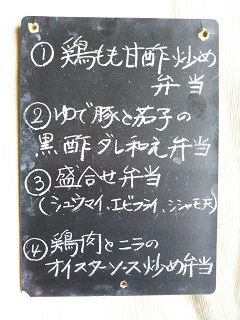 ① 鶏もも甘酢炒め
弁当
② ゆで豚と茄子の
黒酢ダレ和え弁当
③ 盛合せ弁当
(シュウマイ、エビフライ、シシャモ天)
④ 鶏肉とニラの
オイスターソース炒め弁当